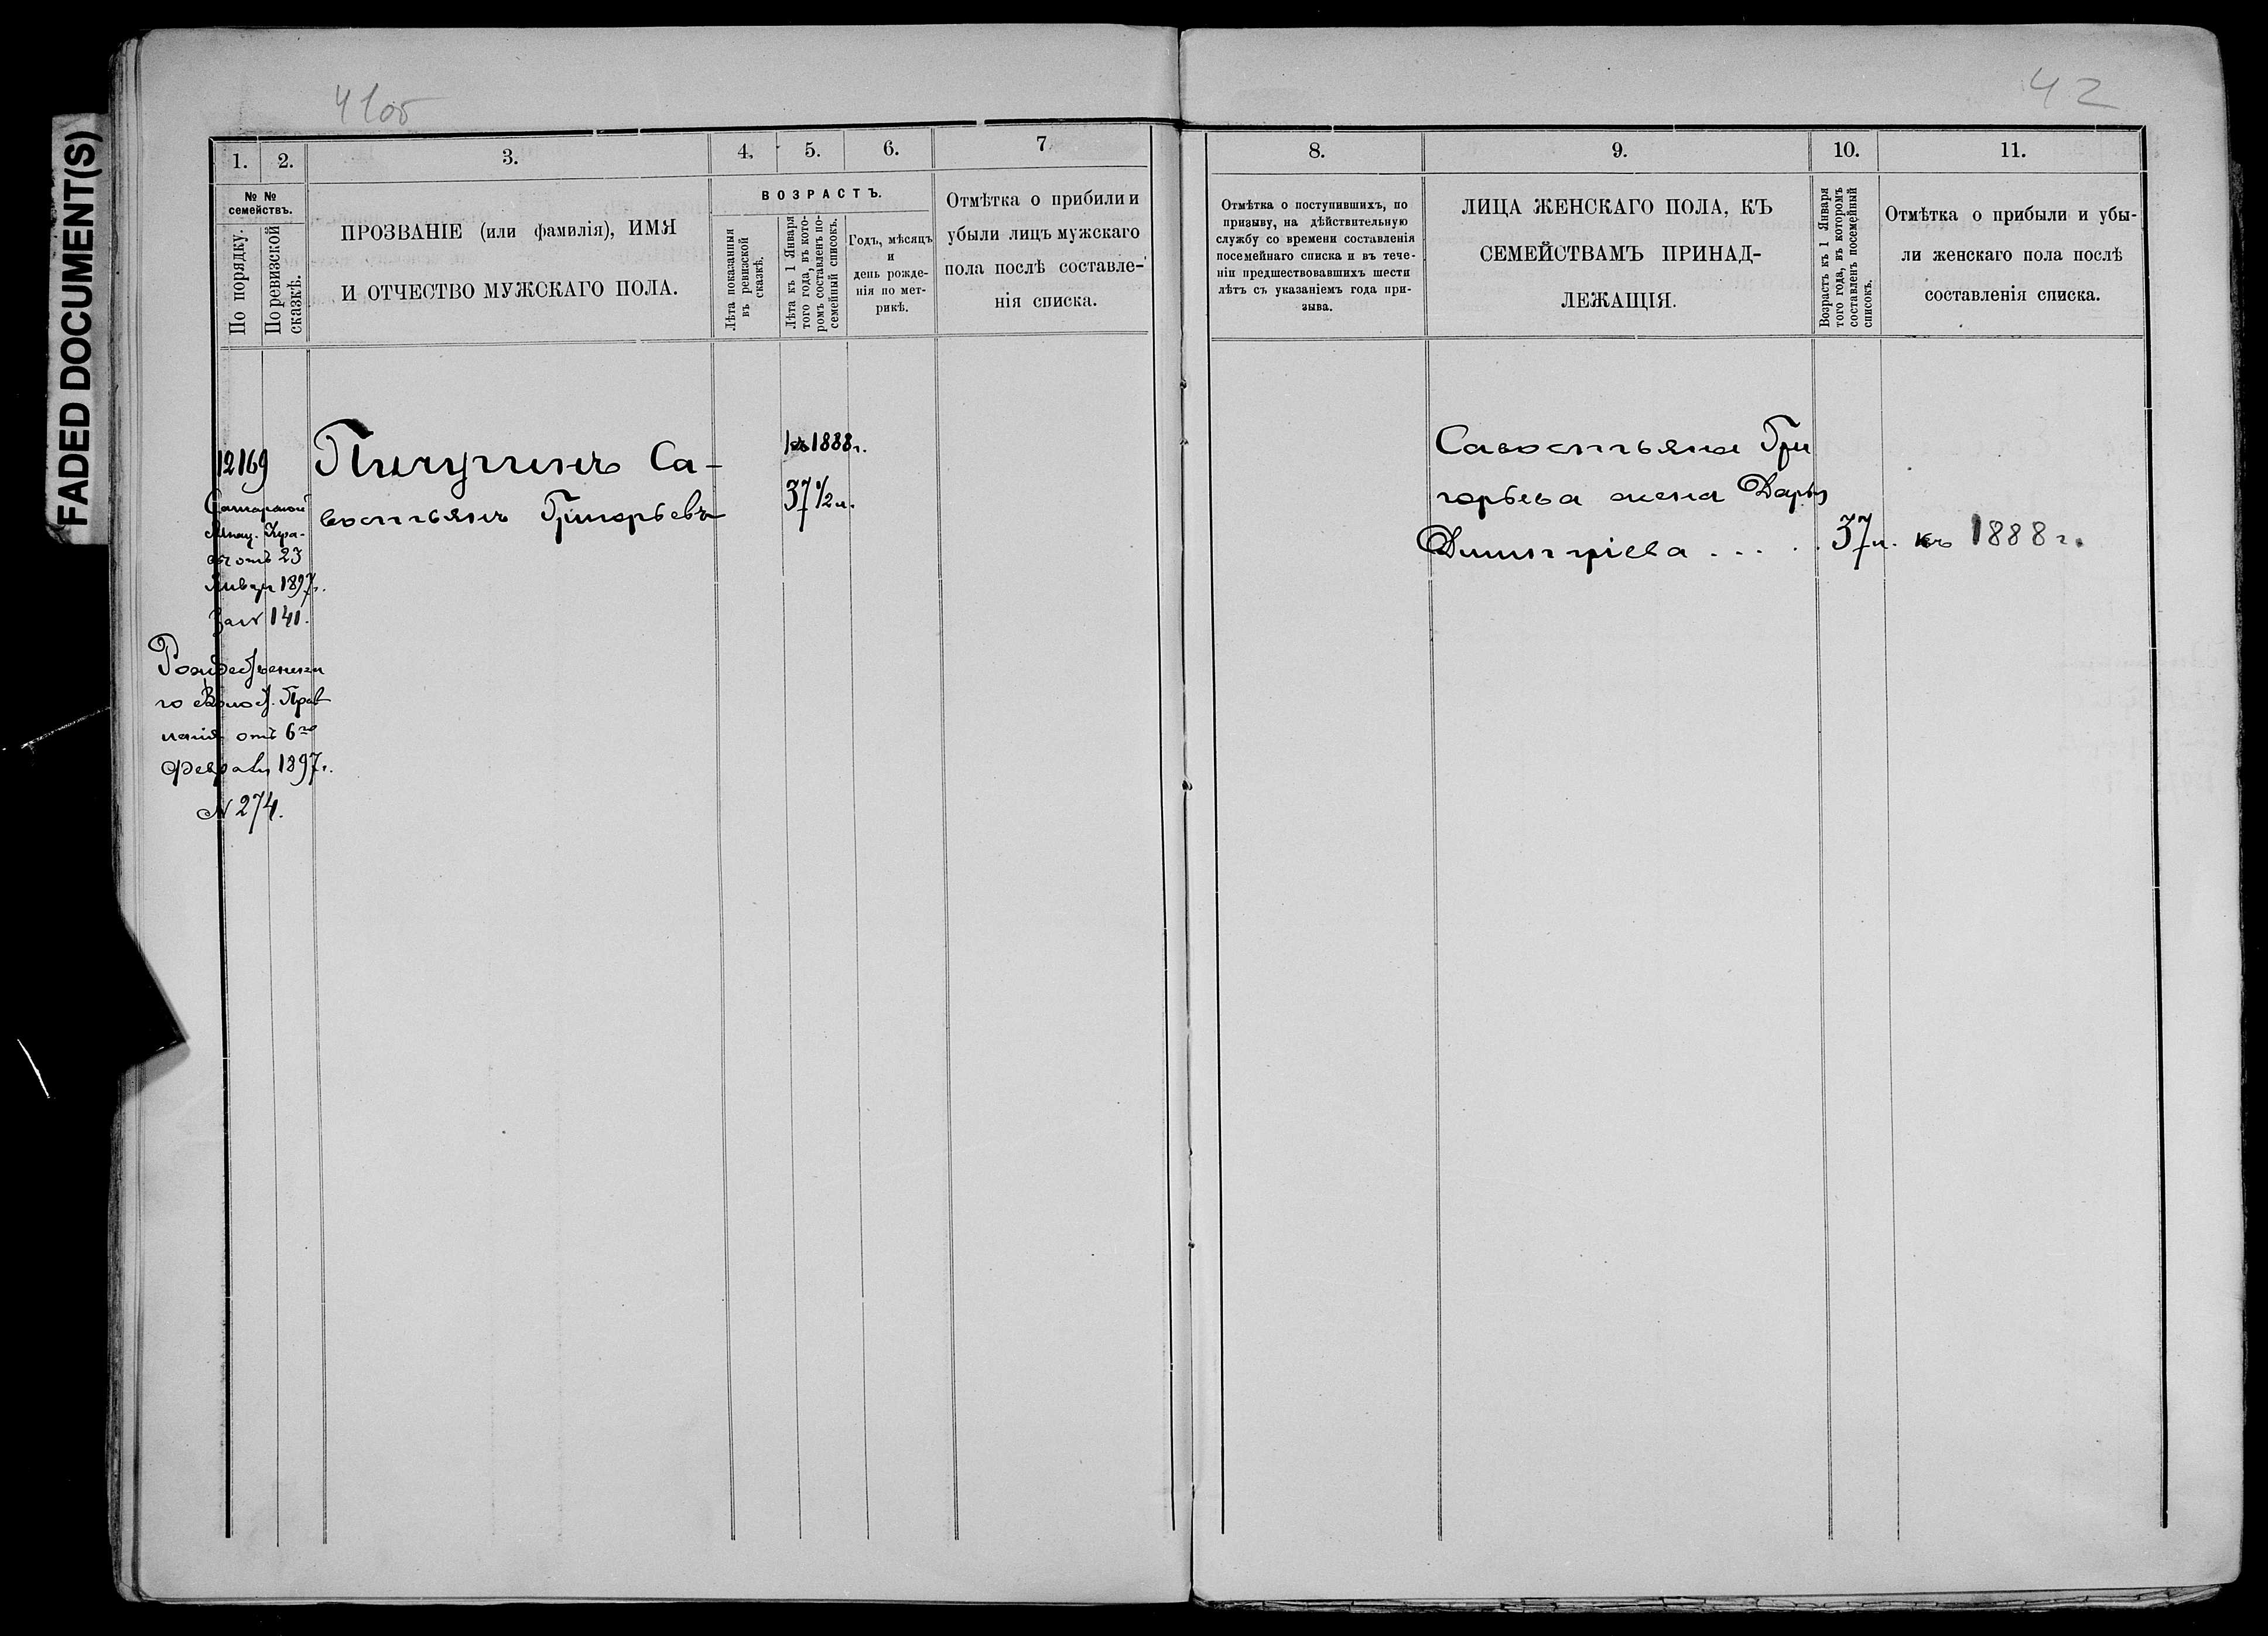 FADED DOCUMENT(S)
41об
1.
2.
3.
4.
5.
6.
7
№ №
семействъ.
По порядку.
По ревизской
сказкѣ.
ПРОЗВАНІЕ (или фамилія), ИМЯ
И ОТЧЕСТВО МУЖСКАГО ПОЛА.
ВОЗРАСТЪ.
Лѣта показанныя
въ ревизской
сказкѣ.
Лѣта къ 1 Января
того года, въ кото-
ромъ составленъ по-
семейный списокъ.
Годъ, мѣсяцъ
и
день рожде-
нія по мет-
рикѣ.
Отмѣтка о прибыли и
убыли лицъ мужскаго
пола послѣ составле-
нія списка.
12169
Самарской
Казен.
отъ 23
Января 1897г.
за № 141.
Рождественска
го Волост. Прав
ленія отъ 6го
Февраля 1897г.
№ 274.
Пичугинъ Са-
востьянъ Григорьевъ
къ 1888г.
37 1/2 л.
42
8.
9.
10.
11.
Отмѣтка о поступившихъ, по
призыву, на дѣйствительную
службу со времени составленія
посемейнаго списка и въ тече-
ніи предшествовавшихъ шести
лѣтъ съ указаніемъ года при-
зыва.
ЛИЦА ЖЕНСКАГО ПОЛА, КЪ
СЕМЕЙСТВАМЪ ПРИНАД-
ЛЕЖАЩІЯ.
Возрастъ къ 1 Января
того года, въ которомъ
составленъ посемейный
списокъ.
Отмѣтка о прибыли и убы-
ли женскаго пола послѣ
составленія списка.
Савостьяна Гри
горьева жена Дарья
Димитріева . . . . . 37 л. къ 1888 г.